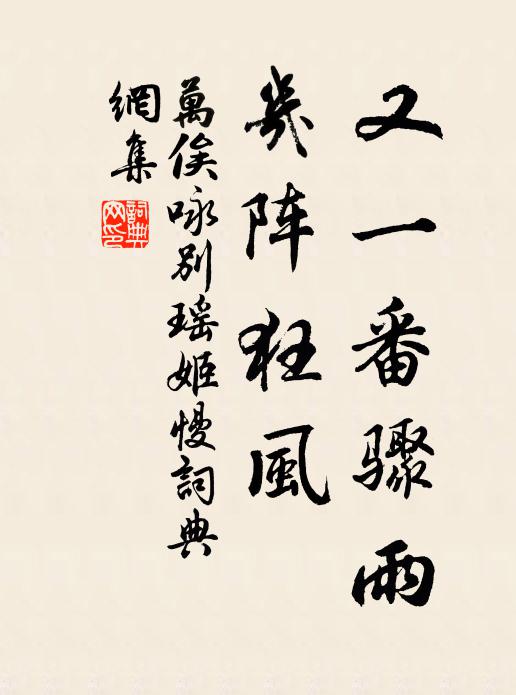 又一番驟雨
幾阵狂風
萬俟咏別瑶姬慢詞典
網集
詞典
网印